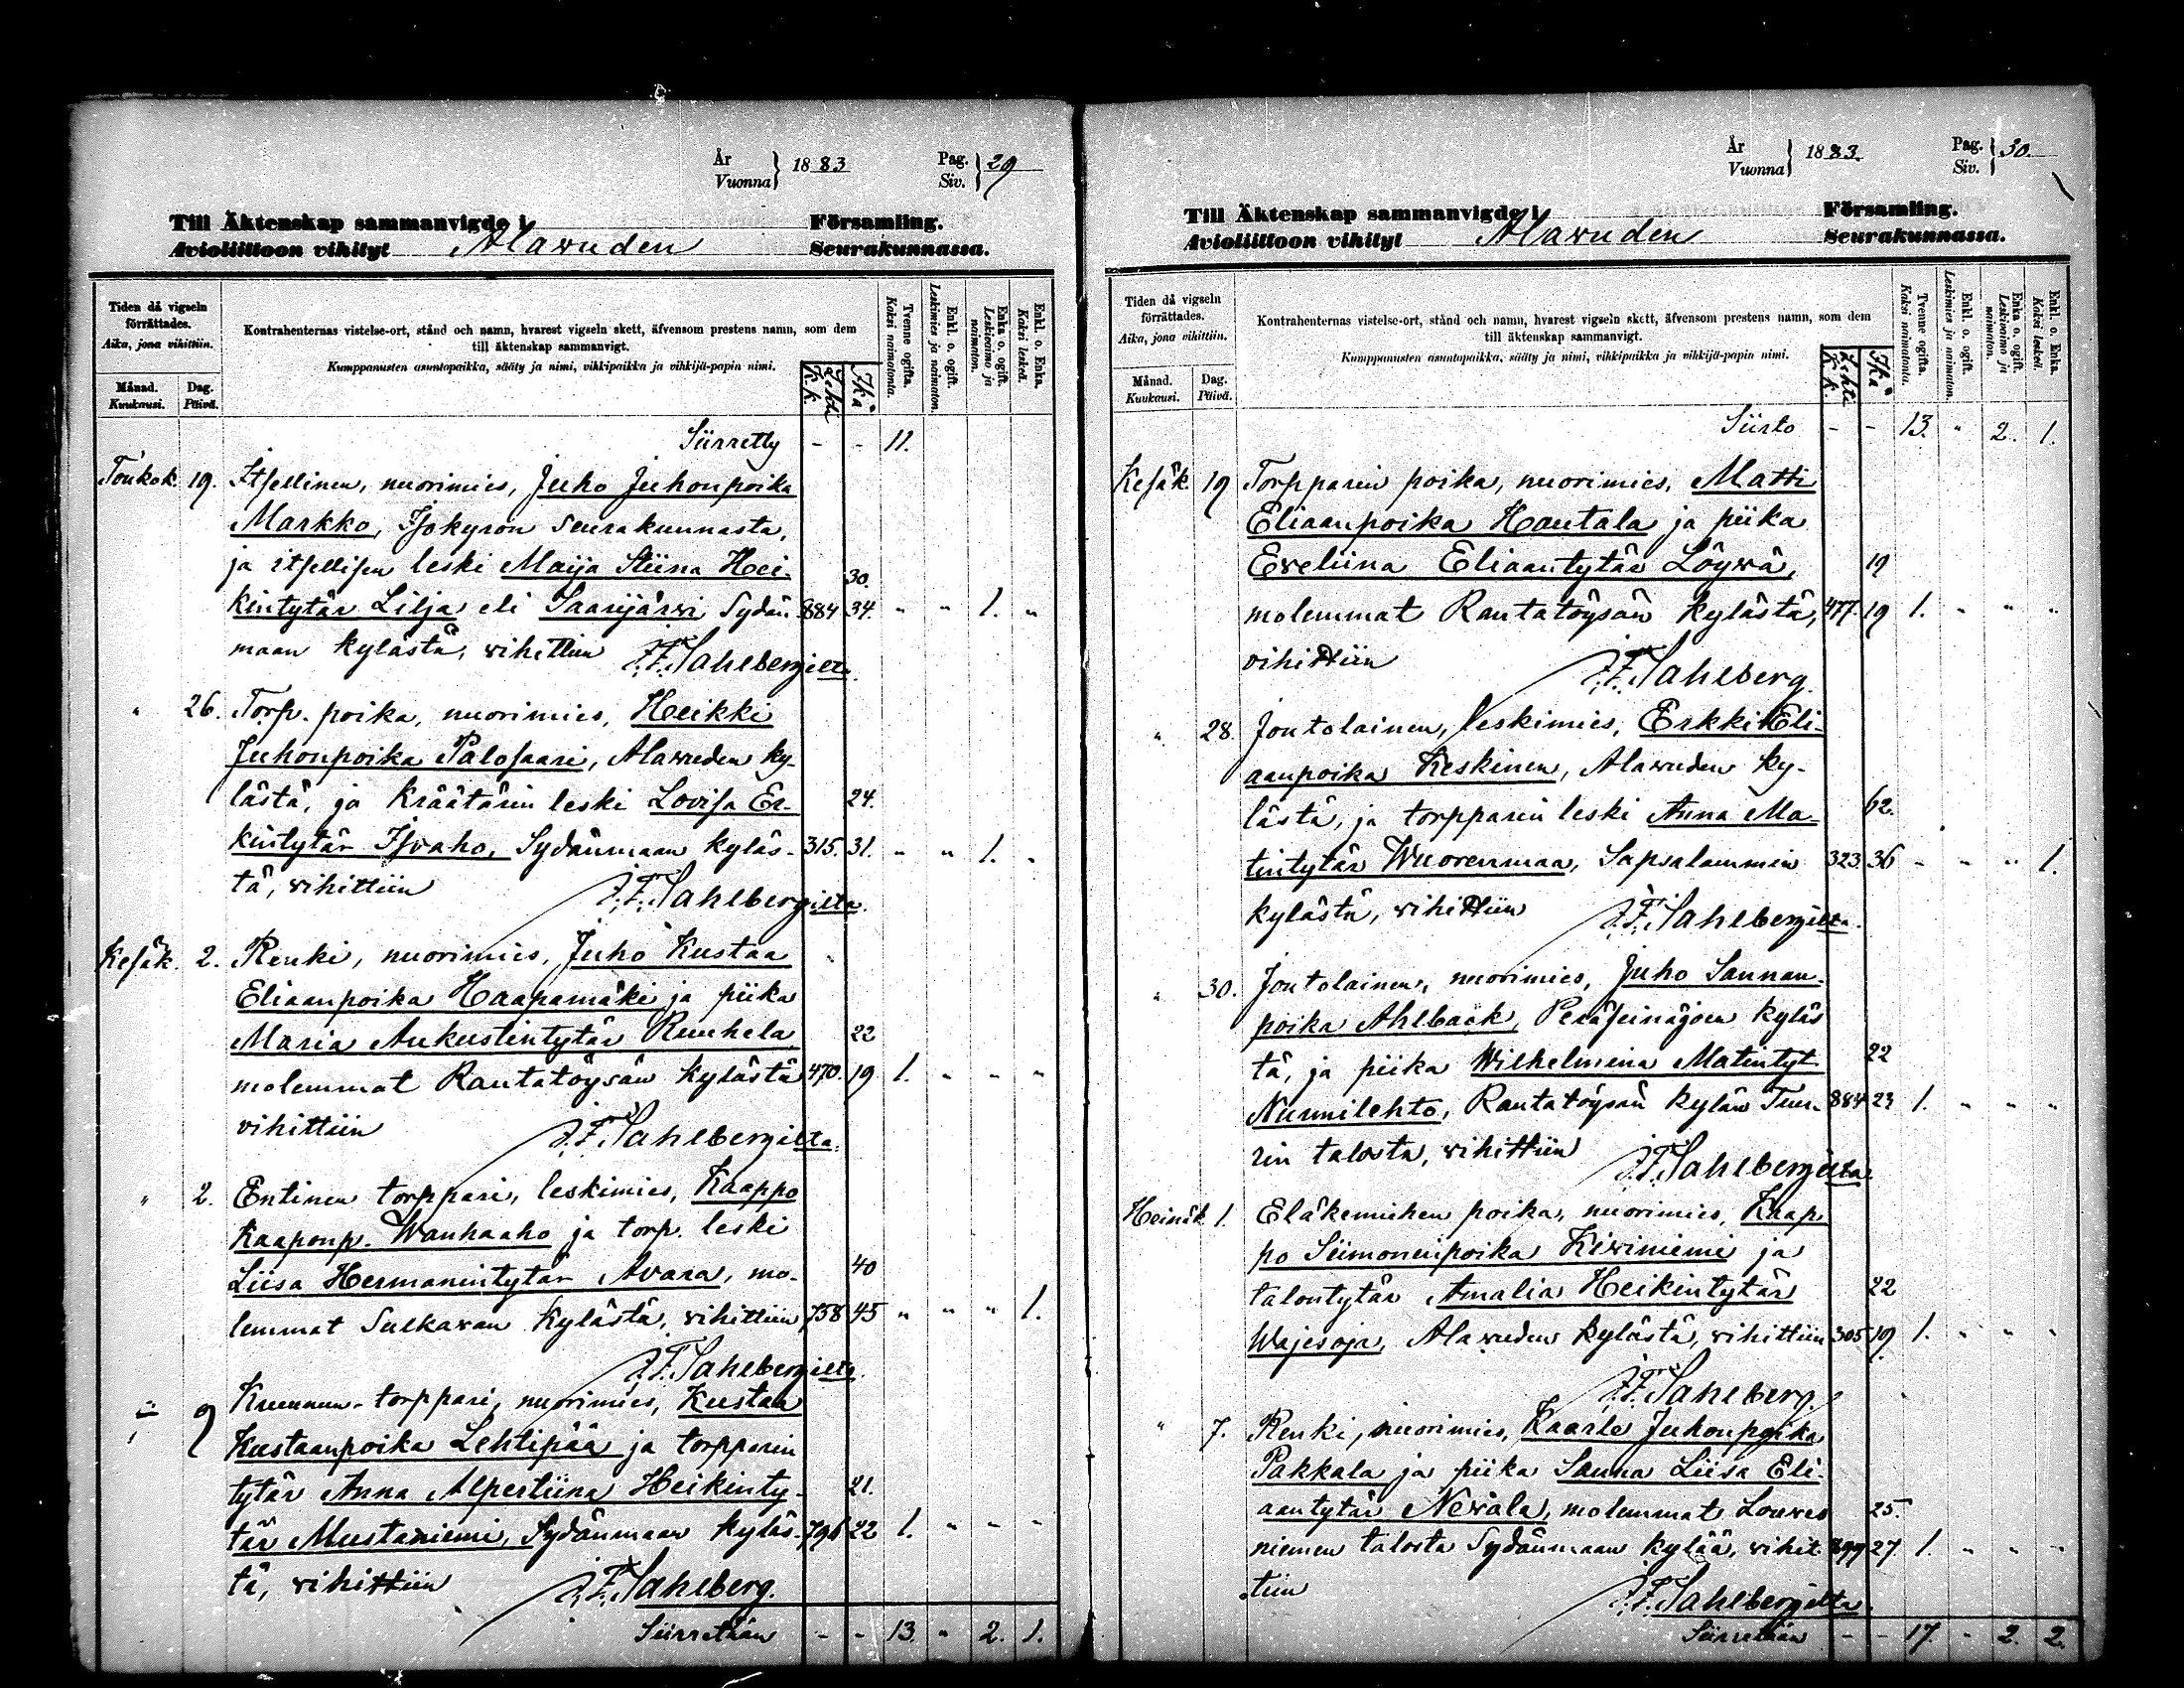 År
Vuonna } 1883
Pag.
Siv. } 29
Till Äktenskap sammanvigde i Församling.
Avioliittoon vihityt Alavuden Seurakunnassa.
Tiden då vigseln förrättades.
Aika, jona vihittiin.
Månad. Kuukausi.
Dag. Päivä.
Kontrahenternas vistelse-ort, stånd och namn, hvarest vigseln skett, äfvensom prestens namn, som dem
till äktenskap sammanvigt.
Kumppanusten asuntopaikka, sääty ja nimi, vihkipaikka ja vihkijä-papin nimi.
K.k. Lehti
Ikä
Tvenne ogifta. Kaksi naimatonta.
Enkl. o. ogift. Leskimies ja naimaton.
Enka o. ogift. Leskivaimo ja naimaton.
Enkl. o. Enka. Kaksi leskeä.
Siirretty - - 11.
Toukok. 19. Itsellinen, nuorimies, Juho Juhonpoika
Markko, Isokyrön seurakunnasta,
ja itsellisen leski Maija Stiina Hei- 30.
kintytär Lilja eli Saarijärvi Sydän- 884 34. " " 1. "
maan kylästä, vihittiin J.F. Sahlbergilta.
" 26. Torp. poika, nuorimies, Heikki
Juhonpoika Palosaari, Alavuden ky-
lästä, ja Kräätärin leski Lovisa Er- 24.
kintytär Isoaho, Sydänmaan kyläs- 315. 31. " " 1. "
tä, vihittiin J.F. Sahlbergilta.
Kesäk. 2. Renki, nuorimies, Juho Kustaa
Eliaanpoika Haapamäki ja piika
Maria Aukustintytär Ruuhela 22
molemmat Rantatöysän kylästä 470. 19. 1. " " "
vihittiin J.F. Sahlbergilta.
" 2. Entinen torppari, leskimies, Kaappo
Kaaponp. Wanhaaho ja torp. leski
Liisa Hermanintytär Avara, mo- 40
lemmat Sulkavan kylästä, vihittiin 758 45 " " " 1.
J.F. Sahlbergilta.
" 9 Kruunun-torppari, nuorimies, Kustaa
Kustaanpoika Lehtipää ja torpparin
tytär Anna Alpertiina Heikinty- 21.
tär Mustaniemi, Sydänmaan kyläs- 796 22 1. " " "
tä, vihittiin J.F. Sahlberg.
Siirretään - - 13. " 2. 1.
År
Vuonna } 1883.
Pag.
Siv. } 30.
Till Äktenskap sammanvigde i Församling.
Avioliittoon vihityt Alavuden Seurakunnassa.
Tiden då vigseln förrättades.
Aika, jona vihittiin.
Månad. Kuukausi.
Dag. Päivä.
Kontrahenternas vistelse-ort, stånd och namn, hvarest vigseln skett, äfvensom prestens namn, som dem
till äktenskap sammanvigt.
Kumppanusten asuntopaikka, sääty ja nimi, vihkipaikka ja vihkijä-papin nimi.
K.k. Lehti
Ikä
Tvenne ogifta. Kaksi naimatonta.
Enkl. o. ogift. Leskimies ja naimaton.
Enka o. ogift. Leskivaimo ja naimaton.
Enkl. o. Enka. Kaksi leskeä.
Siirto - - 13. " 2. 1.
Kesäk. 19 Torpparin poika, nuorimies, Matti
Eliaanpoika Hautala ja piika
Eveliina Eliaantytär Löyvä, 19
molemmat Rantatöysän kylästä, 477. 19 1. " " "
vihittiin J.F. Sahlberg.
" 28. Joutolainen, leskimies, Erkki Eli-
aanpoika Keskinen, Alavuden ky-
lästä, ja torpparin leski Anna Ma- 62.
tintytär Wuorenmaa, Sapsalammin 323 36 " " " 1.
kylästä, vihittiin J.F. Sahlbergilta.
" 30. Joutolainen, nuorimies, Juho Sannan-
poika Ahlbäck, Peräseinäjoen kyläs
tä, ja piika Wilhelmiina Matintyt 22
Nurmilehto, Rantatöysän kylän Tuu- 884 23 1. " " "
rin talosta, vihittiin J.F. Sahlbergilta.
Heinäk. 1. Eläkemiehen poika, nuorimies, Kaap-
po Siimoninpoika Kiviniemi ja
talontytär Amalia Heikintytär 22
Wajesoja, Alavuden kylästä, vihittiin 305 19 1. " " "
J.F. Sahlberg.
" 7. Renki, nuorimies, Kaarle Juhonpoika
Pakkala ja piika Sanna Liisa Eli-
aantytär Nevala, molemmat Louves 25.
niemen talosta Sydänmaan kylää, vihit- 899 27. 1. " " "
tiin J.F. Sahlbergilta.
Siirretään - - 17. " 2. 2.